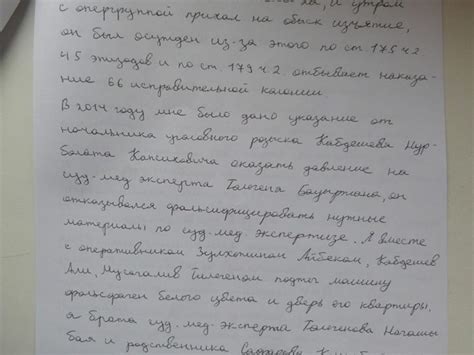 ха, и утром
с опергруппой приехал на обыск изъятие,
он был осужден из-за этого по ст. 175 ч 2
45 эпизодов и по ст. 179 ч 2. отбывает наказа-
ние 66 исправительной колонии
В 2014 году мне было дано указание от
начальника уголовного розыска Кабдешева Нур-
болата Капсиховича оказать давление на
суд. мед эксперта Толегена Бауыржана, он
отказывался фальсифицировать нужные
материалы по суд. мед. экспертизе. А вместе
с оперативником Айбеком, Кабдешев
Али, Мусагалив Тилегеном машину
фольсваген белого цвета и дверь его квартиры,
а брата суд. мед. эксперта Толегенова
бая и родственника